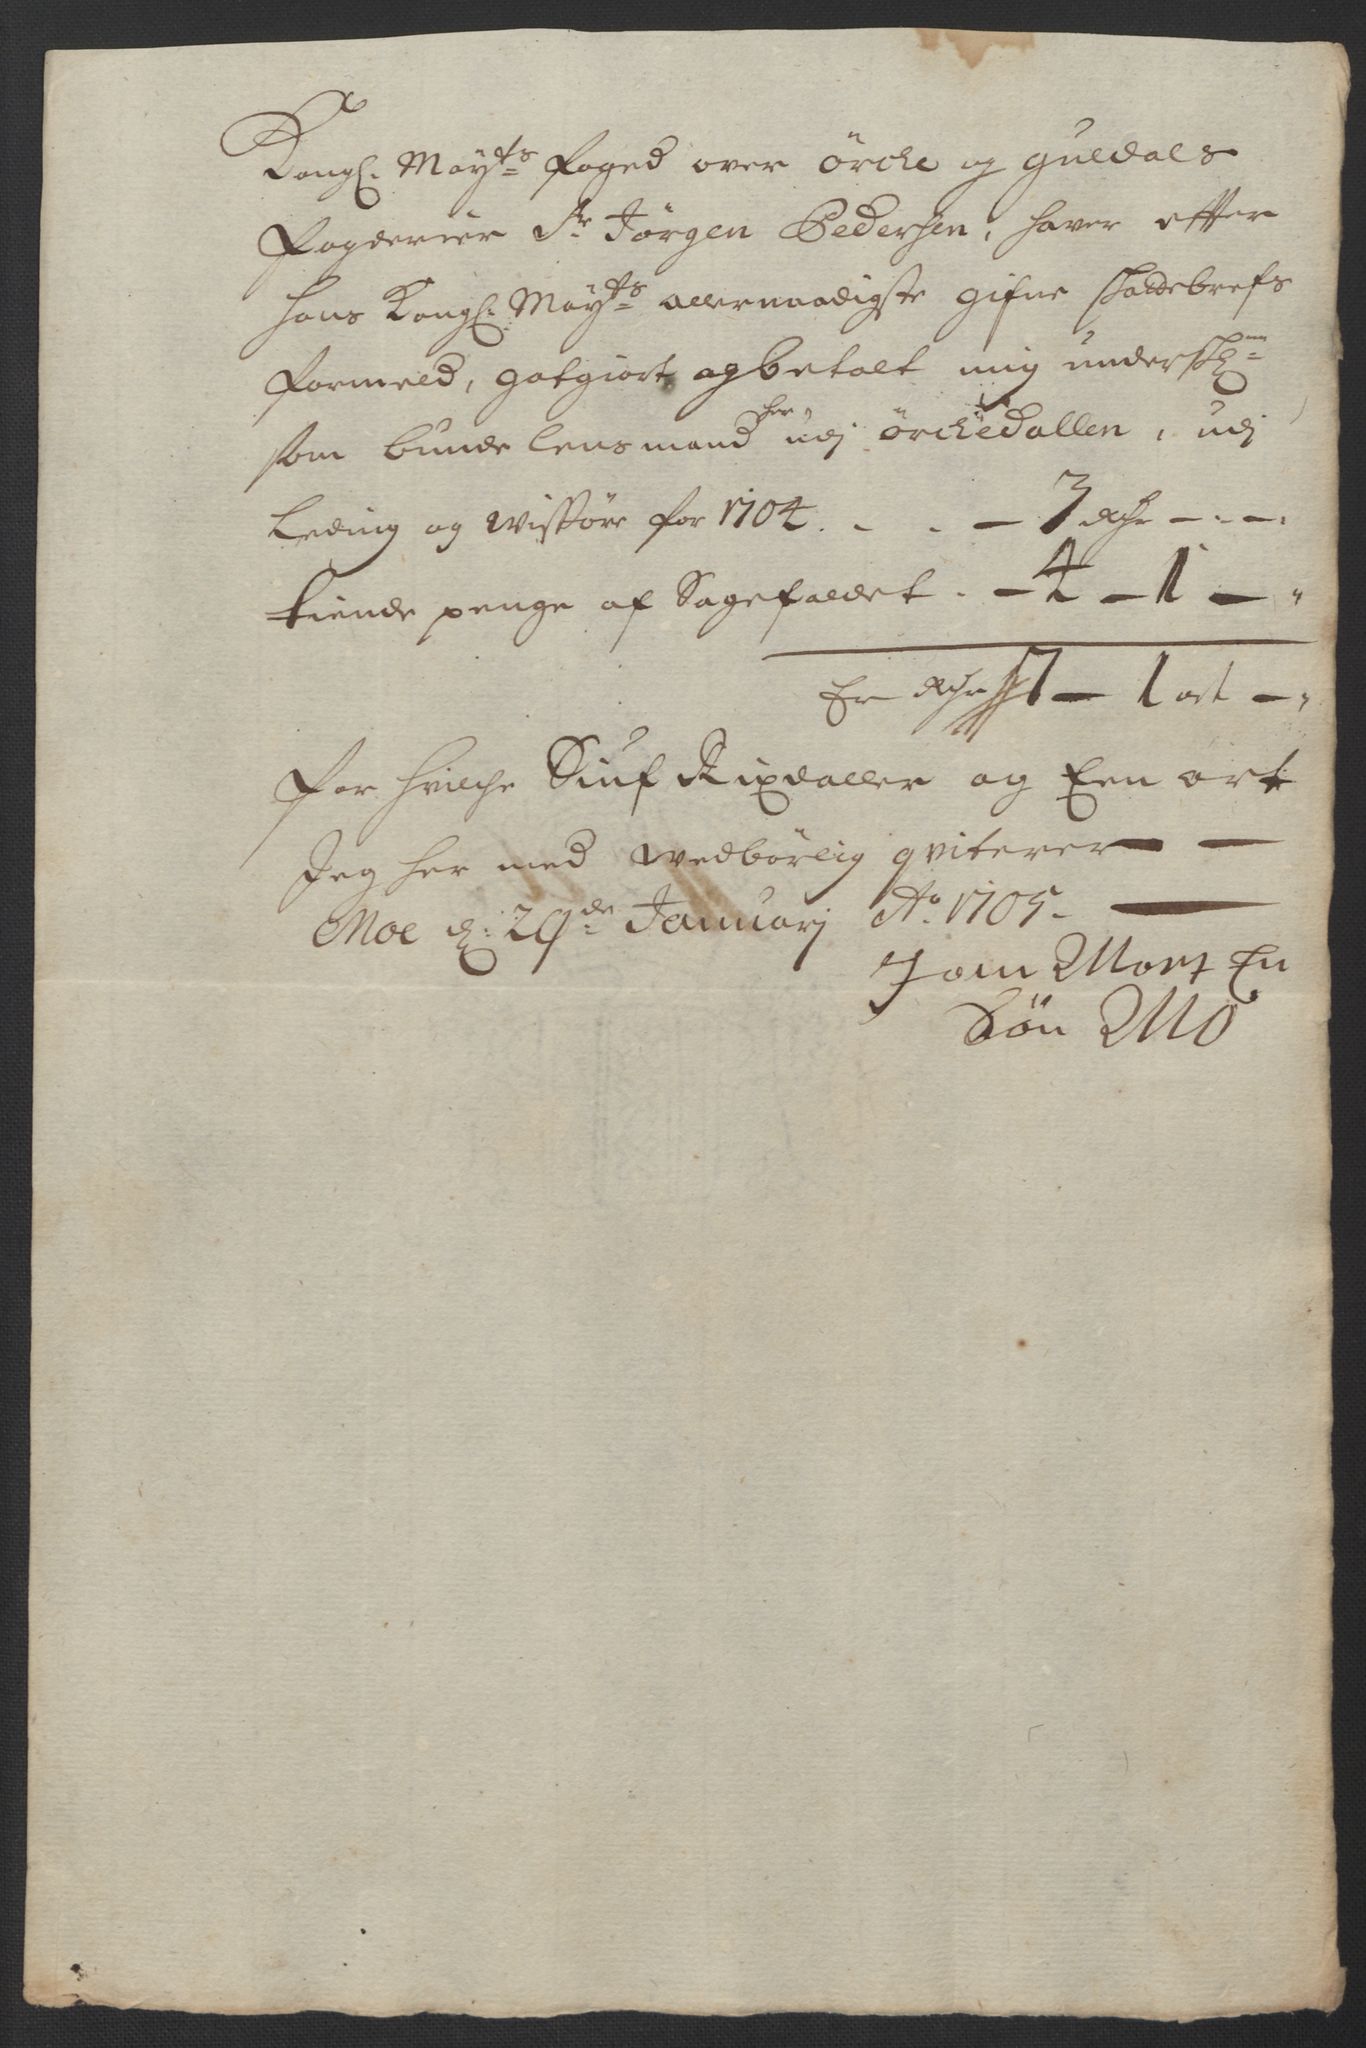 Kongl. Mayts Foged over örche og Guldals
Fogderier Sr Jörgen Pedersen, hafver efter
hans Kongl: Mayts allernaadigste gifne skattebrefs
formeld, gotgiort og betalt mig underskr:
som bunde lensmand her udj örchedallen, udj
Leding og Wissöre for 1704 . - . - 3 Rdr - . - .
tiende penge af Sagefaldet . - 4 - 1 - "
Er Rdr 7 - 1 ort - "
For hvilche Siuf Rixdaller og Een ort
Jeg her med wedbörlig qviterer - -
Moe d: 29de Januarj Ao. 1705 -
Joen Mort En
Sön MO